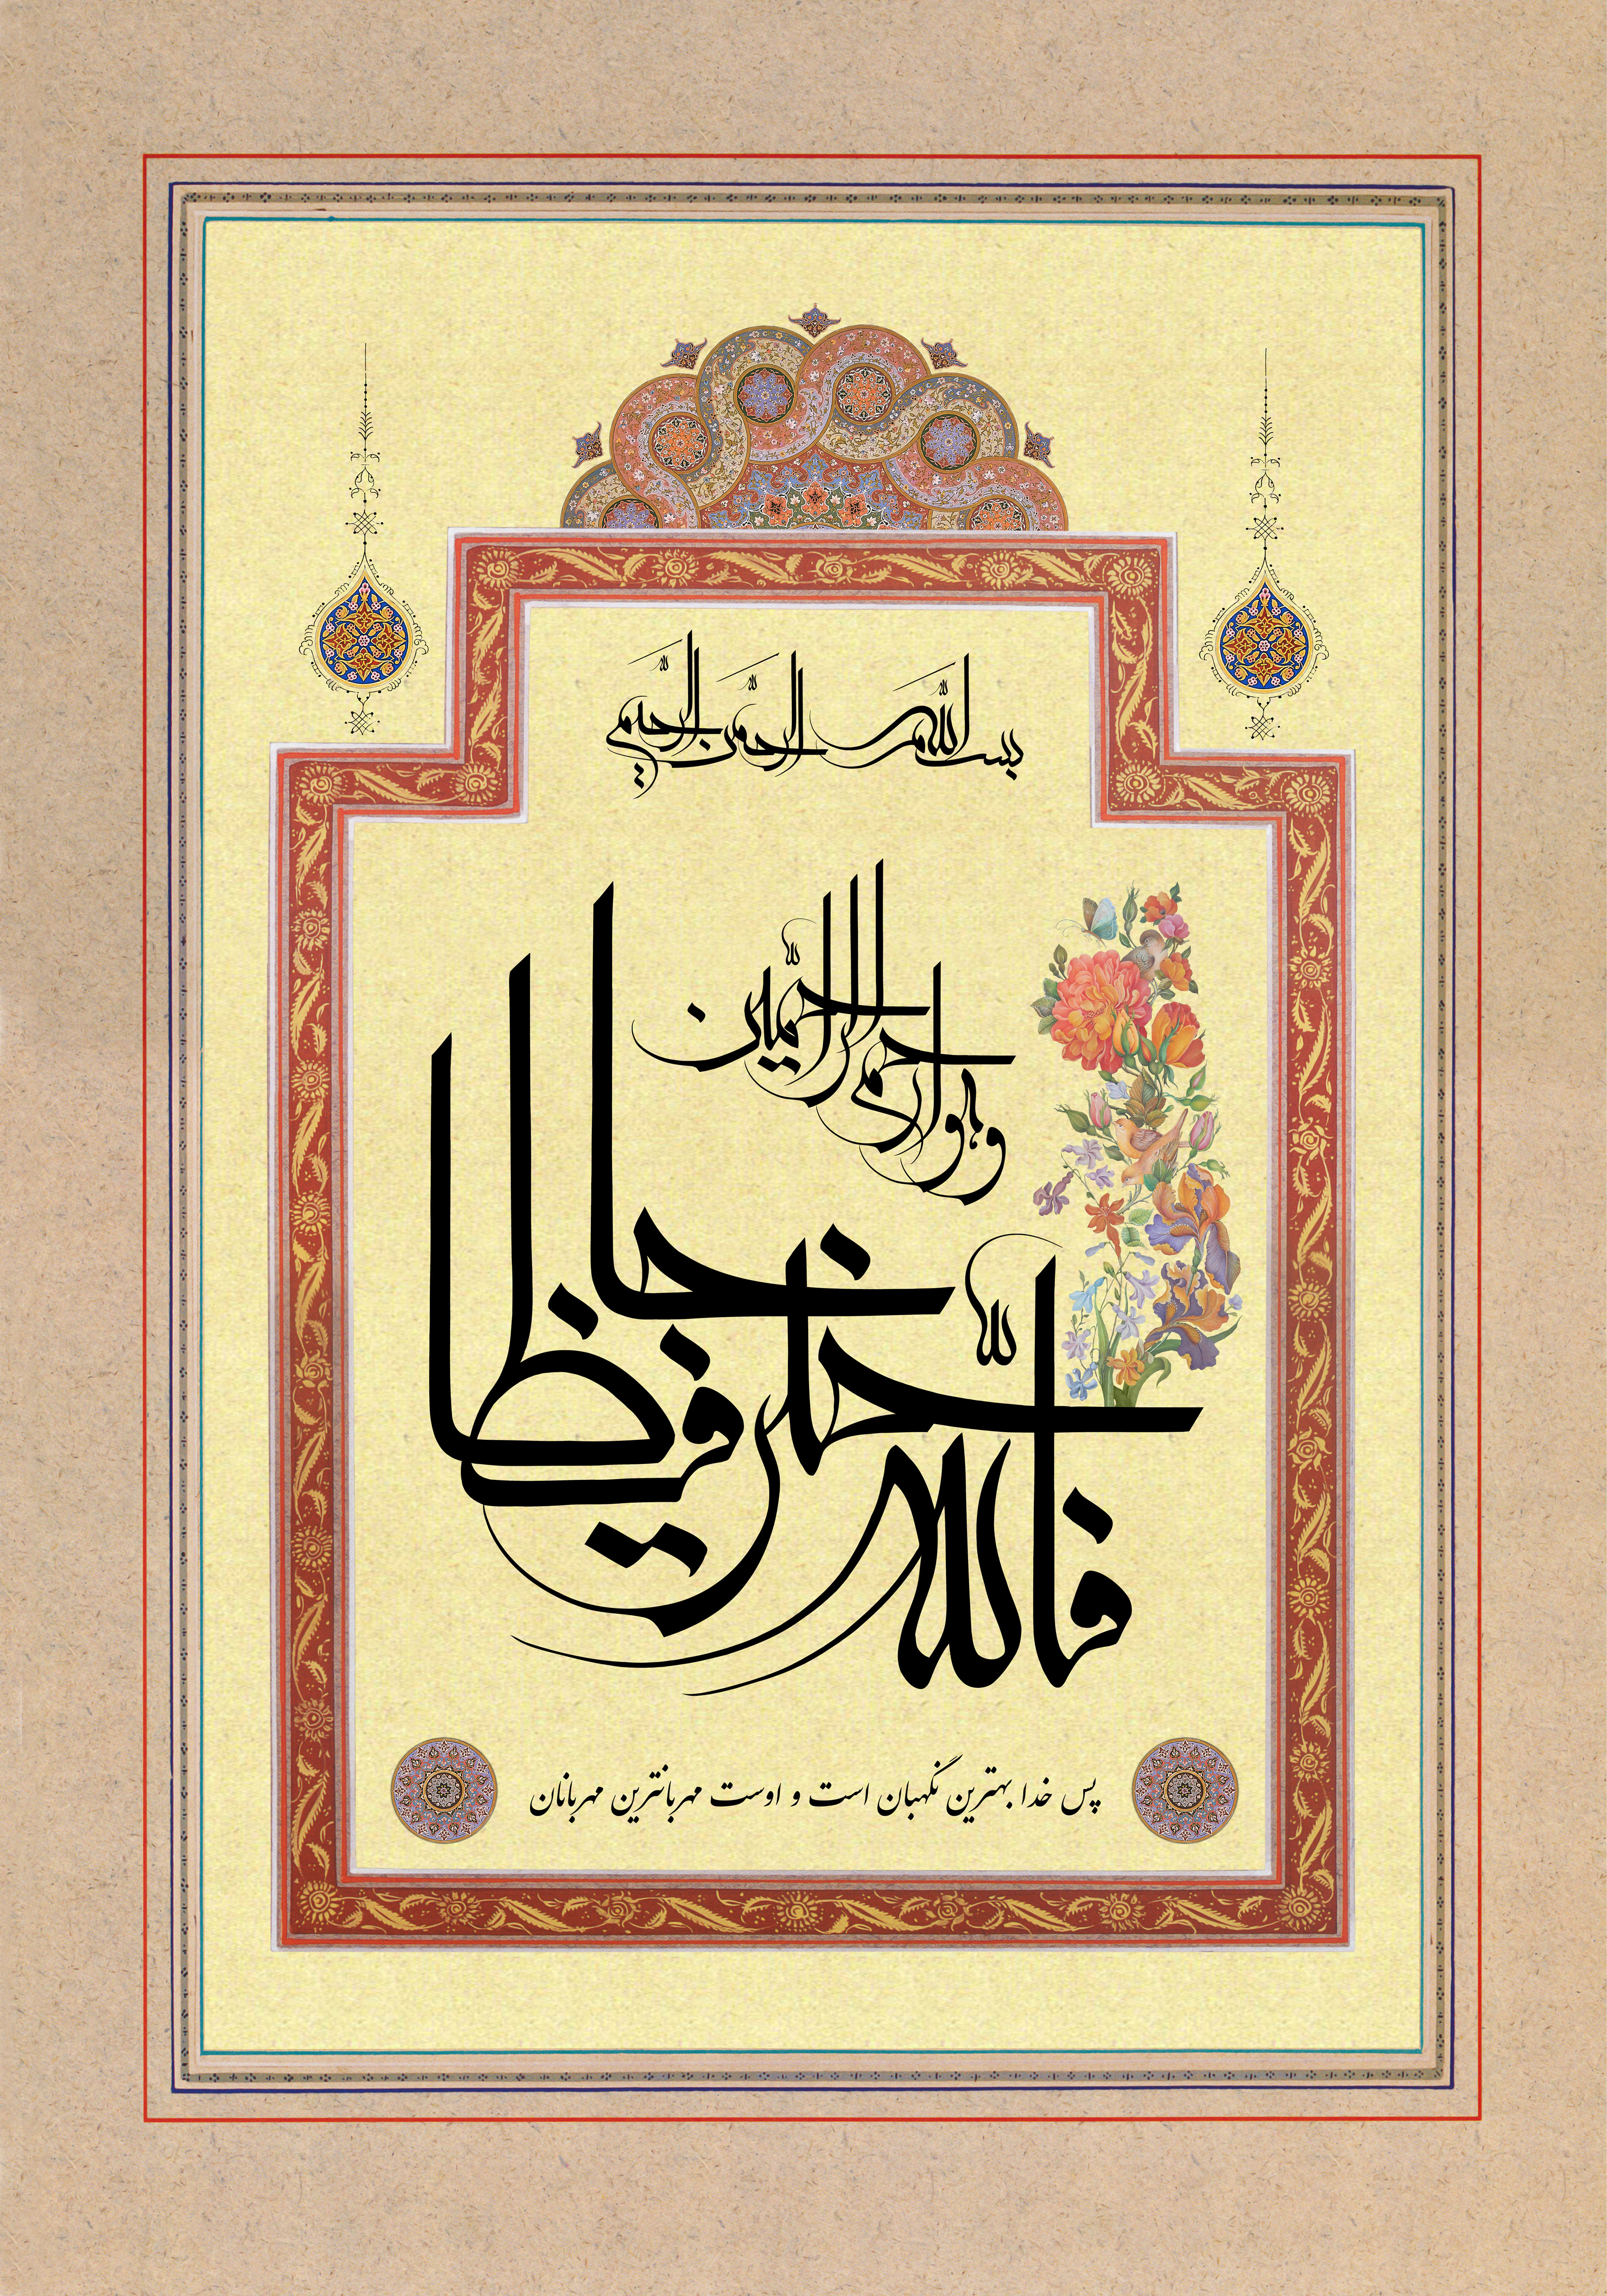 بسم الله الرحمن الرحیم
فالله خیر حافظا
و هو ارحم الراحمین
پس خدا بهترین نگهبان است و اوست مهربانترین مهربانان